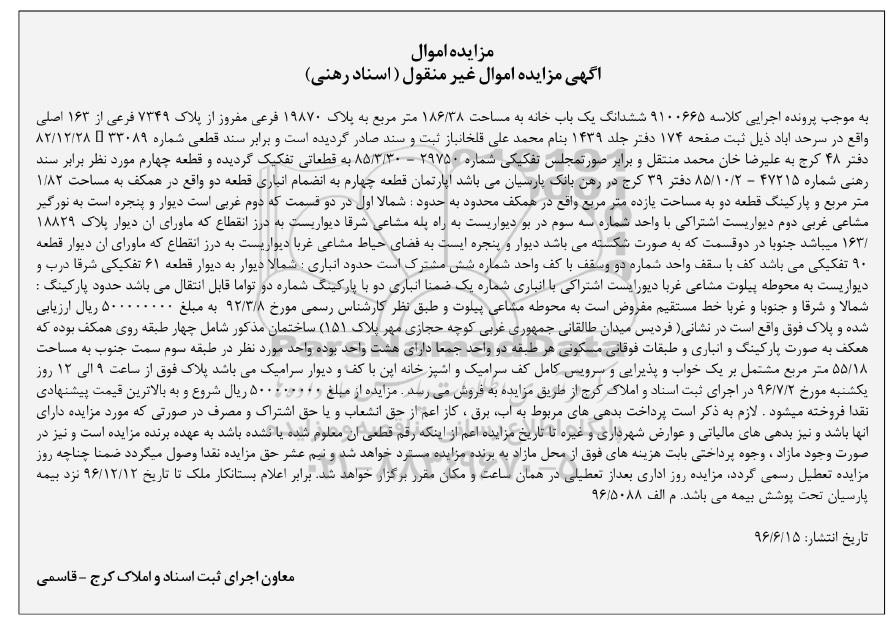 مزایده اموال
اگهی مزایده اموال غیر منقول ( اسناد رهنی)
به موجب پرونده اجرایی کلاسه ۹۱۰۰۶۶۵ ششدانگ یک باب خانه به مساحت ۱۸۶/۳۸ متر مربع به پلاک ۱۹۸۷۰ فرعی مفروز از پلاک ۷۳۴۹ فرعی از ۱۶۳ اصلی
واقع در سرحد اباد ذیل ثبت صفحه ۱۷۴ دفتر جلد ۱۴۳۹ بنام محمد علی قلخانباز ثبت و سند صادر گردیده است و برابر سند قطعی شماره ۳۳۰۸۹ ۸۲/۱۲/۲۸
دفتر ۴۸ کرج به علیرضا خان محمد منتقل و برابر صورتمجلس تفکیکی شماره ۲۹۷۵۰ – ۸۵/۳/۳۰ به قطعاتی تفکیک گردیده و قطعه چهارم مورد نظر برابر سند
رهنی شماره ۴۷۲۱۵ – ۸۵/۱۰/۲ دفتر ۳۹ کرج در رهن بانک پارسیان می باشد اپارتمان قطعه چهارم به انضمام انباری قطعه دو واقع در همکف به مساحت ۱/۸۲
متر مربع و پارکینگ قطعه دو به مساحت یازده متر مربع واقع در همکف محدود به حدود : شمالا اول در دو قسمت که دوم غربی است دیوار و پنجره است به نورگیر
مشاعی غربی دوم دیواریست اشتراکی با واحد شماره سه سوم در بو دیواریست به راه پله مشاعی شرقا دیواریست به درز انقطاع که ماورای ان دیوار پلاک ۱۸۸۲۹
/۱۶۳ میباشد جنوبا در دوقسمت که به صورت شکسته می باشد دیوار و پنجره ایست به فضای حیاط مشاعی غربا دیواریست به درز انقطاع که ماورای ان دیوار قطعه
۹۰ تفکیکی می باشد کف با سقف واحد شماره دو وسقف با کف واحد شماره شش مشترک است حدود انباری : شمالا دیوار به دیوار قطعه ۶۱ تفکیکی شرقا درب و
دیواریست به محوطه پیلوت مشاعی غربا دیورایست اشتراکی با انباری شماره یک ضمنا انباری دو با پارکینگ شماره دو تواما قابل انتقال می باشد حدود پارکینگ :
شمالا و شرقا و جنوبا و غربا خط مستقیم مفروض است به محوطه مشاعی پیلوت و طبق نظر کارشناس رسمی مورخ ۹۲/۳/۸ به مبلغ ۵۰۰۰۰۰۰۰۰ ریال ارزیابی
شده و پلاک فوق واقع است در نشانی( فردیس میدان طالقانی جمهوری غربی کوچه حجازی مهر پلاک ۱۵۱) ساختمان مذکور شامل چهار طبقه روی همکف بوده که
همکف به صورت پارکینگ و انباری و طبقات فوقانی مسکونی هر طبقه دو واحد جمعا دارای هشت واحد بوده واحد مورد نظر در طبقه سوم سمت جنوب به مساحت
۵۵/۱۸ متر مربع مشتمل بر یک خواب و پذیرایی و سرویس کامل کف سرامیک و اشپز خانه اپن با کف و دیوار سرامیک می باشد پلاک فوق از ساعت ۹ الی ۱۲ روز
یکشنبه مورخ ۹۶/۷/۲ در اجرای ثبت اسناد و املاک کرج از طریق مزایده به فروش می رسد . مزایده از مبلغ ۵۰۰۰۰۰۰۰۰ ریال شروع و به بالاترین قیمت پیشنهادی
نقدا فروخته میشود . لازم به ذکر است پرداخت بدهی های مربوط به آب، برق ، گاز اعم از حق انشعاب و یا حق اشتراک و مصرف در صورتی که مورد مزایده دارای
انها باشد و نیز بدهی های مالیاتی و عوارض شهرداری و غیره تا تاریخ مزایده اعم از اینکه رقم قطعی ان معلوم شده یا نشده باشد به عهده برنده مزایده است و نیز در
صورت وجود مازاد ، وجوه پرداختی بابت هزینه های فوق از محل مازاد به برنده مزایده مسترد خواهد شد و نیم عشر حق مزایده نقدا وصول میگردد ضمنا چناچه روز
مزایده تعطیل رسمی گردد، مزایده روز اداری بعداز تعطیلی در همان ساعت و مکان مقرر برگزار خواهد شد. برابر اعلام بستانکار ملک تا تاریخ ۹۶/۱۲/۱۲ نزد بیمه
پارسیان تحت پوشش بیمه می باشد. م الف ۹۶/۵۰۸۸
تاریخ انتشار: ۹۶/۶/۱۵
معاون اجرای ثبت اسناد و املاک کرج – قاسمی
ParsNamadData
۰۲۱-۸۸۳۴۹۶۷۰-۵